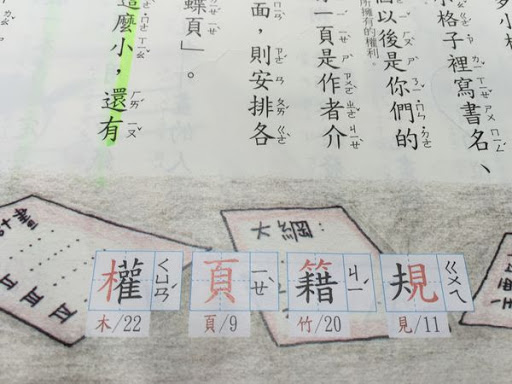 多小
小格子裡寫書名、
以後是你們的
所擁有的權利。
一頁是作者介
面，則安排各
蝶頁」。
這麼小，還有
大綱：
計畫
規 ㄍㄨㄟ
見/11
籍 ㄐㄧˊ
竹/20
頁 ㄧㄝˋ
頁/9
權 ㄑㄩㄢˊ
木/22